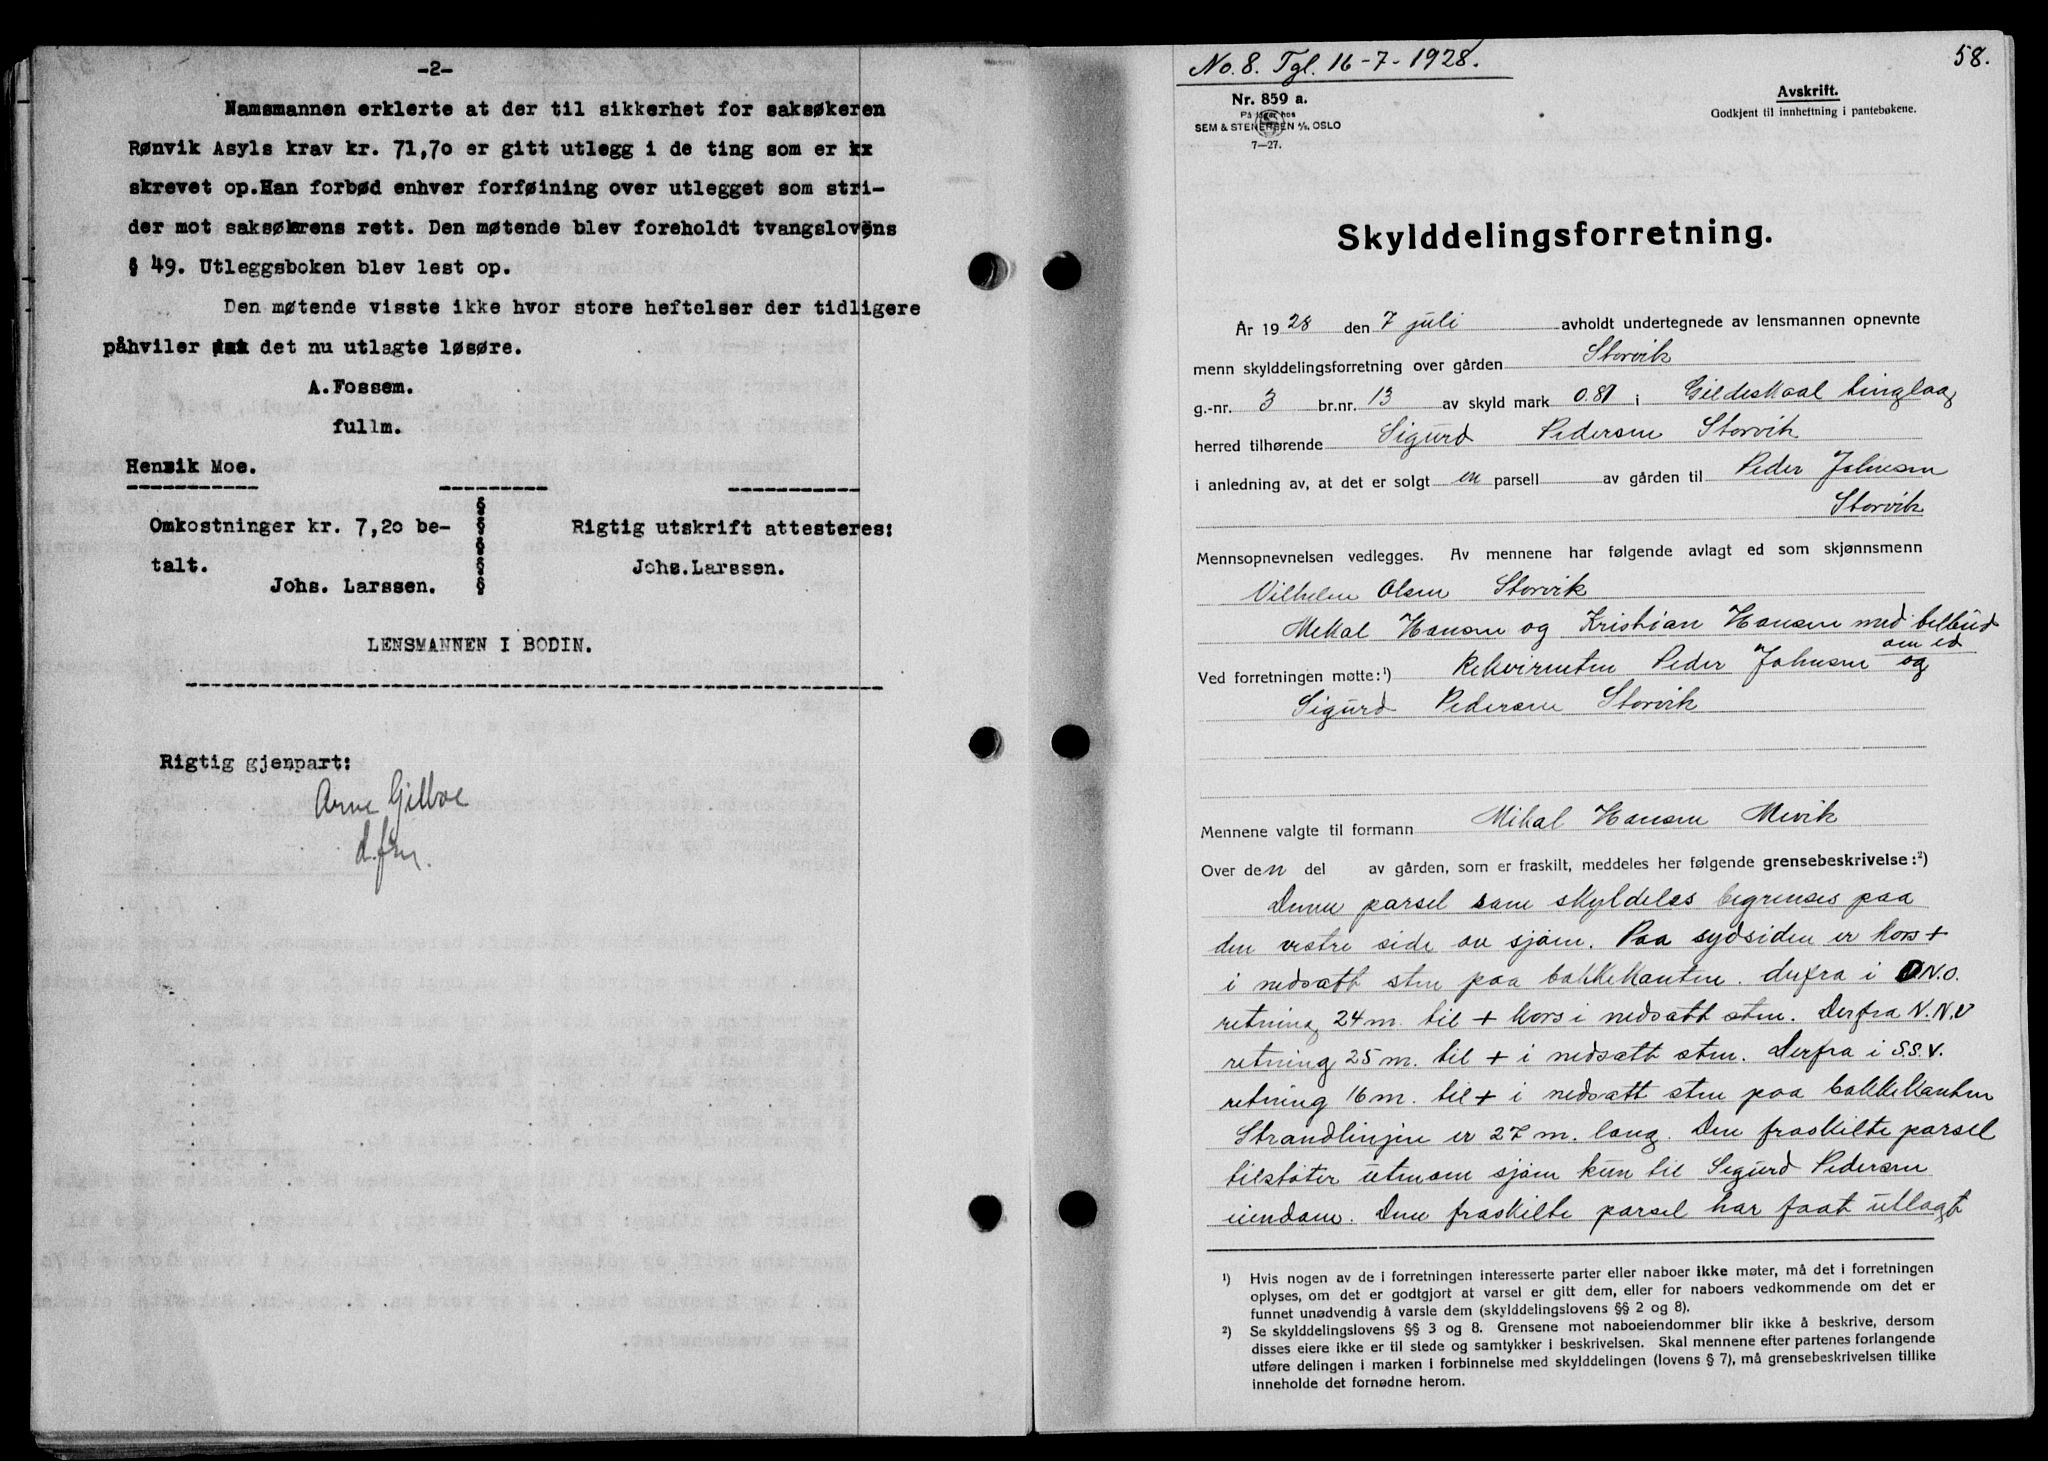 -2-
Namsmannen erklerte at der til sikkerhet for saksøkeren
Rønvik Asyls krav kr. 71,70 er gitt utlegg i de ting som er xx
skrevet op.Han forbød enhver forføining over utlegget som stri-
der mot saksøkrens rett. Den møtende blev foreholdt tvangslovens
§ 49. Utleggsboken blev lest op.
Den møtende visste ikke hvor store heftelser der tidligere
påhviler det nu utlagte løsøre.
A.Fossem.
fullm.
Henrik Moe.
Omkostninger kr. 7,20 be-
talt.
Johs. Larssen.
§
§
§
§
§
§
Rigtig utskrift attesteres:
Johs.Larssen.
LENSMANNEN I BODIN.
Rigtig gjenpart:
Arne Gilboe
d.fm.
No. 8. Tgl. 16-7-1928.
58.
Nr. 859 a.
På lager hos
SEM & STENERSEN A/S, OSLO
7—27.
Avskrift.
Godkjent til innheftning i pantebøkene.
Skylddelingsforretning.
År 1928 den 7 juli avholdt undertegnede av lensmannen opnevnte
menn skylddelingsforretning over gården Storvik
g.-nr. 3 br.nr. 13 av skyld mark 0.81 i Gildeskaal tinglag
herred tilhørende Sigurd Pedersen Storvik
i anledning av, at det er solgt en parsell av gården til Peder Johnsen
Storvik
Mennsopnevnelsen vedlegges. Av mennene har følgende avlagt ed som skjønnsmenn
Vilhelm Olsen Storvik
Mikal Hansen og Kristian Hansen med tilbud
om ed
Ved forretningen møtte:¹) Rekvirenten Peder Johnsen og
Sigurd Pedersen Storvik
Mennene valgte til formann Mikal Hansen Mevik
Over den del av gården, som er fraskilt, meddeles her følgende grensebeskrivelse:²)
Denne parsel som skyldeles begrenses paa
den vestre side av sjøen. Paa sydsiden er kors +
i nedsatt sten paa bakkekanten. derfra i O.N.O.
retning 24 m. til + kors i nedsatt sten. Derfra N.N.V
retning 25 m. til + i nedsatt sten. Derfra i S.S.V.
retning 16 m. til + i nedsatt sten paa bakkekanten
Strandlinjen er 27 m. lang. Den fraskilte parsel
tilstøter utenom sjøen kun til Sigurd Pedersen
eiendom. Den fraskilte parsel har faat utlagt
¹) Hvis nogen av de i forretningen interesserte parter eller naboer ikke møter, må det i forretningen
oplyses, om det er godtgjort at varsel er gitt dem, eller for naboers vedkommende om det er
funnet unødvendig å varsle dem (skylddelingslovens §§ 2 og 8).
²) Se skylddelingslovens §§ 3 og 8. Grensene mot naboeiendommer blir ikke å beskrive, dersom
disses eiere ikke er til stede og samtykker i beskrivelsen. Skal mennene efter partenes forlangende
utføre delingen i marken i forbinnelse med skylddelingen (lovens § 7), må grensebeskrivelsen tillike
inneholde det fornødne herom.